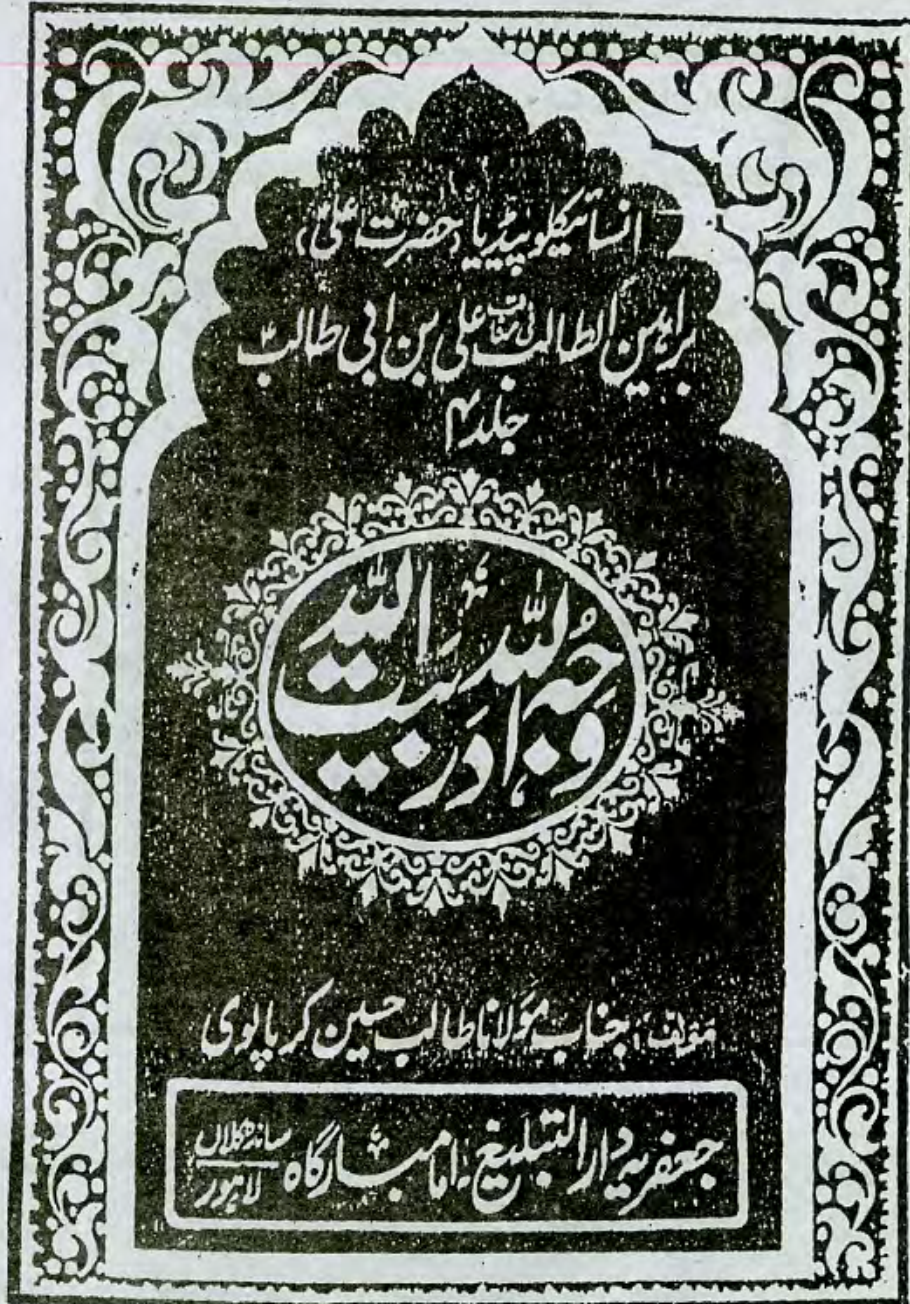 انسائیکلوپیڈیا، حضرت علیؑ،
براہین الطالب فی مناقب علی بن ابی طالبؑ
جلد ۴
وجہ اللہ اور بیت اللہ
مؤلف: جناب مولانا طالب حسین کرپالوی
جعفریہ دار التبلیغ، امامبارگاہ ساندہ کلاں
لاہور